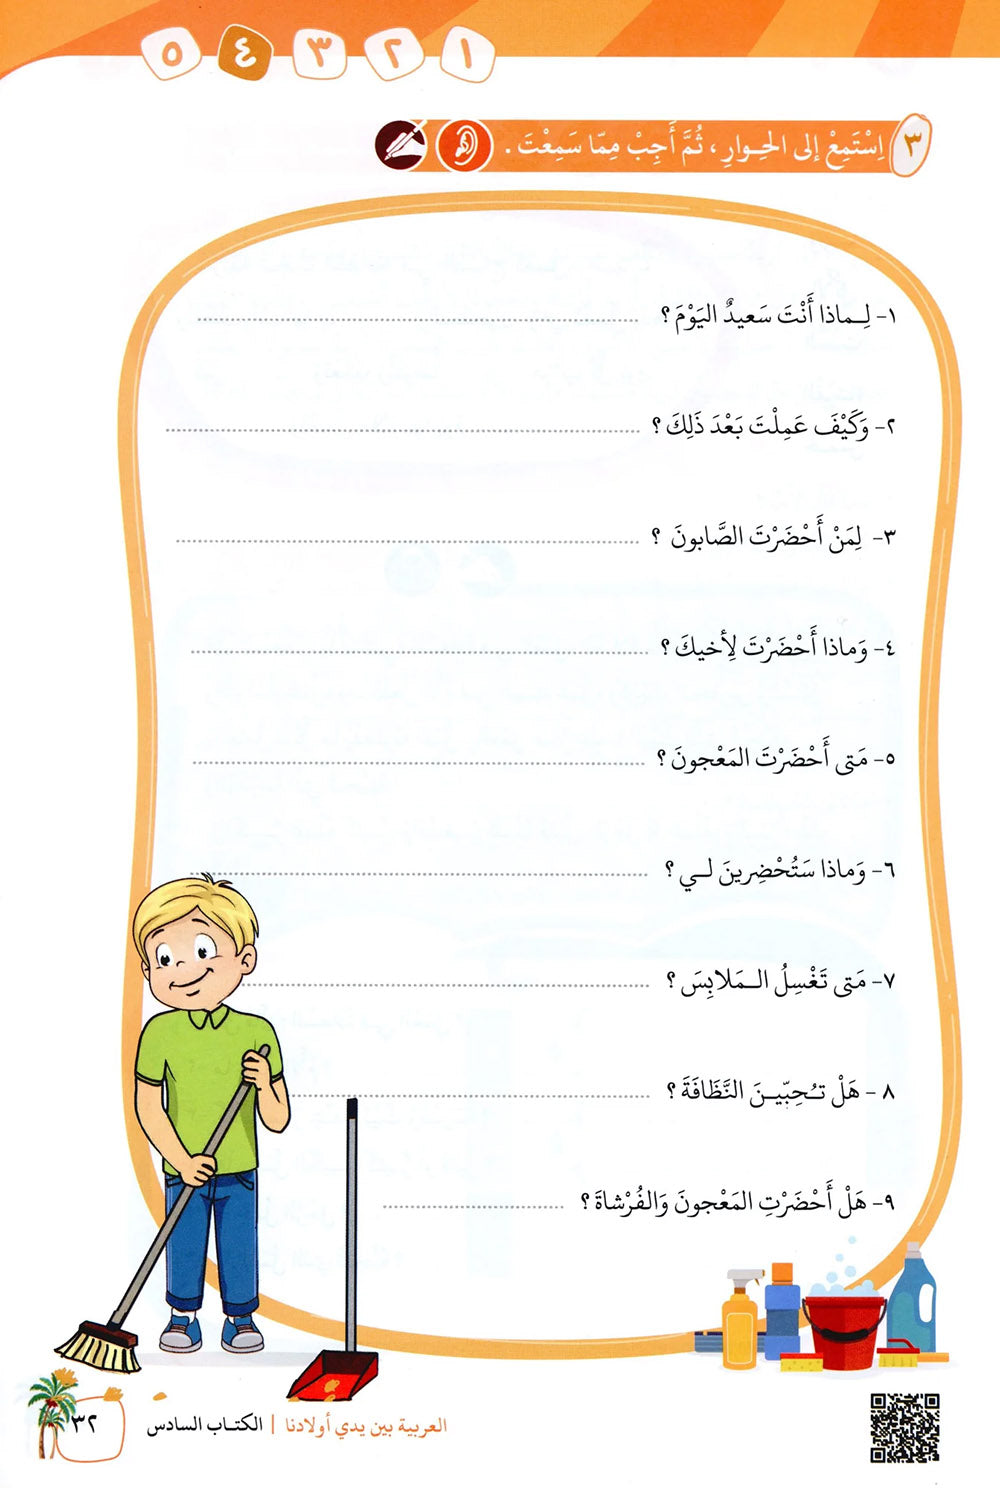 ١ ٢ ٣ ٤ ٥
٣ اِسْتَمِعْ إلى الحِوارِ ، ثُمَّ أَجِبْ مِمّا سَمِعْتَ .
١- لِـماذا أَنْتَ سَعيدٌ اليَوْمَ ؟
٢- وَكَيْفَ عَمِلْتَ بَعْدَ ذَلِكَ ؟
٣- لِمَنْ أَحْضَرْتَ الصَّابونَ ؟
٤- وَماذا أَحْضَرْتَ لِأخيكَ ؟
٥- مَتى أَحْضَرْتَ المَعْجونَ ؟
٦- وَماذا سَتُحْضِرينَ لـي ؟
٧- مَتى تَغْسِلُ الـمَلابِسَ ؟
٨ - هَلْ تـُحِبّيـنَ النَّظَافَةَ ؟
٩- هَلْ أَحْضَرْتِ المَعْجونَ وَالفُرْشاةَ ؟
العربية بين يدي أولادنا | الكتـاب السادس
٣٢